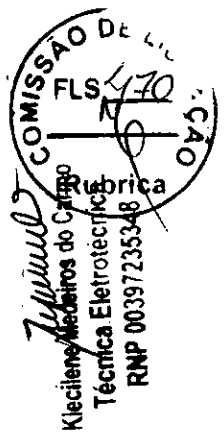 COMISSÃO DE
FLS 470
Rubrica
Klecilene Medeiros do Carmo
Técnica Eletrotécnica
RNP 00397235348